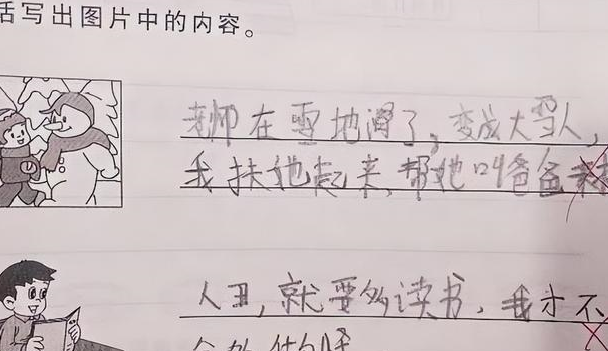 话写出图片中的内容。
老师在雪地滑了,变成大雪人,
我扶她起来,帮她叫爸爸来
人丑,就要多读书,我才不
会